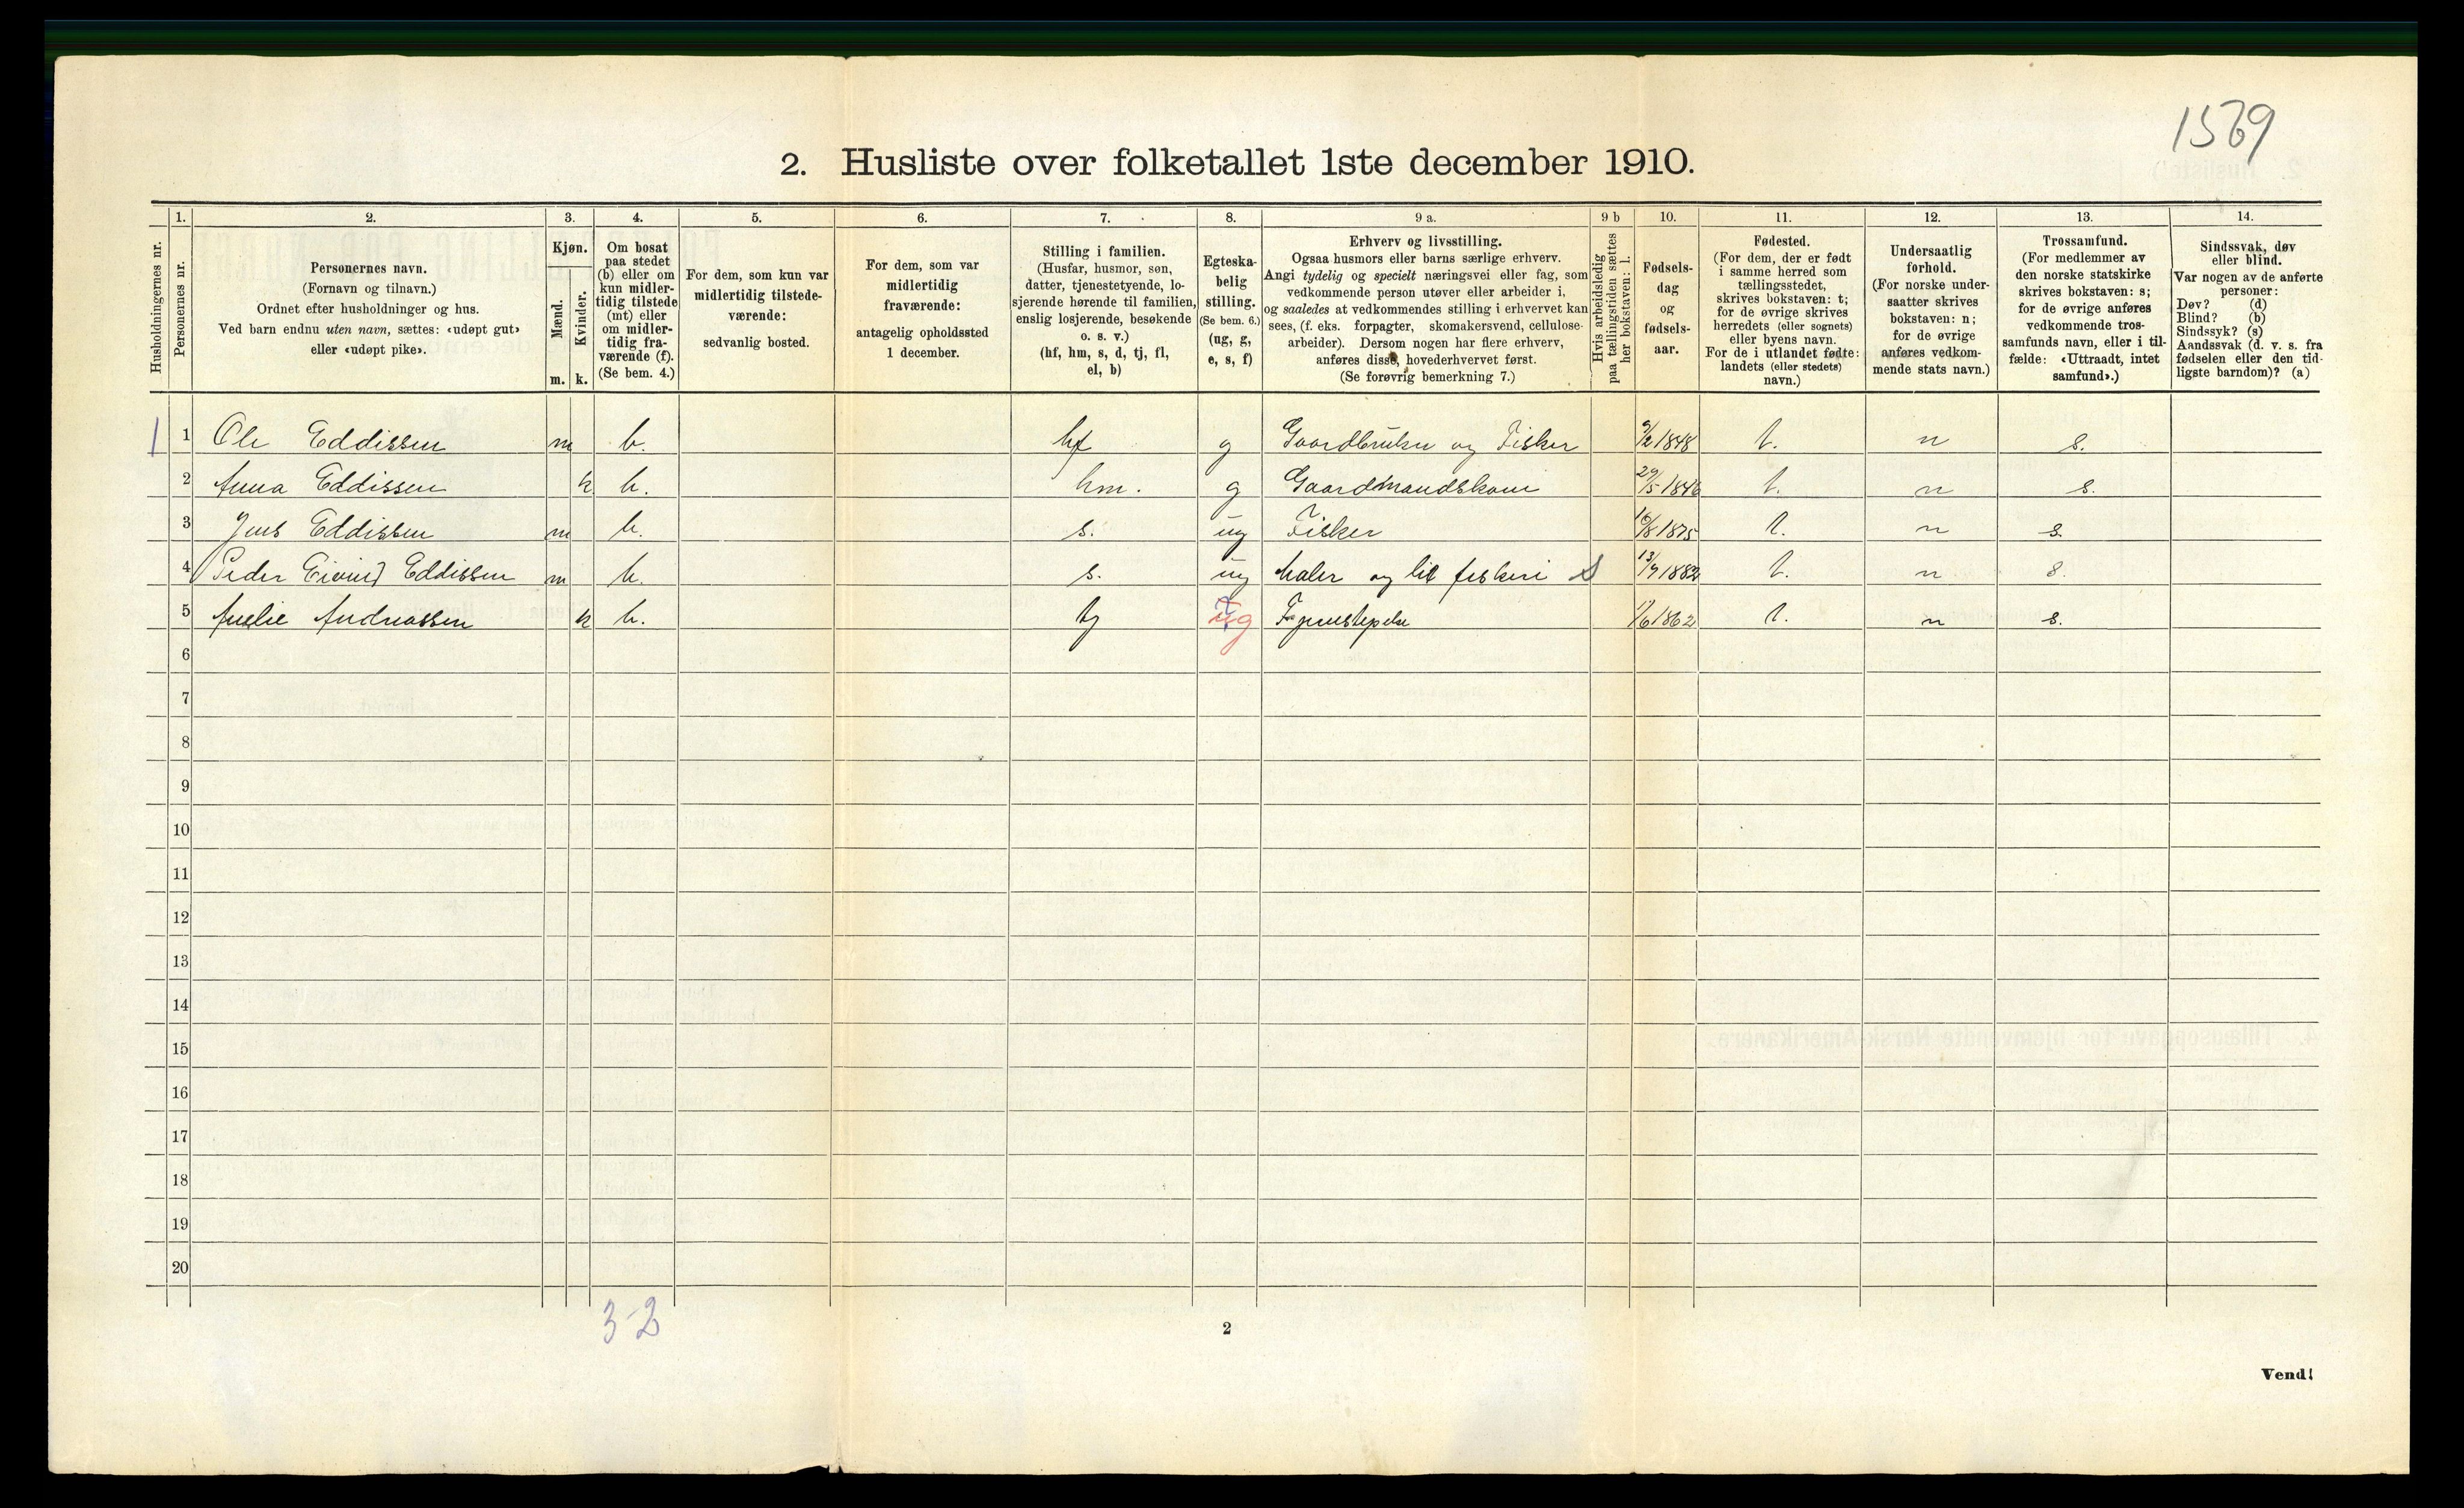 1569
2. Husliste over folketallet 1ste december 1910.
1. 2. 3. 4. 5. 6. 7. 8. 9 a. 9 b 10. 11. 12. 13. 14.
Husholdningernes nr.
Personernes nr.
Personernes navn.
(Fornavn og tilnavn.)
Ordnet efter husholdninger og hus.
Ved barn endnu uten navn, sættes: «udøpt gut»
eller «udøpt pike».
Kjøn.
Mænd.
Kvinder.
m. k.
Om bosat
paa stedet
(b) eller om
kun midler-
tidig tilstede
(mt) eller
om midler-
tidig fra-
værende (f).
(Se bem. 4.)
For dem, som kun var
midlertidig tilstede-
værende:
sedvanlig bosted.
For dem, som var
midlertidig
fraværende:
antagelig opholdssted
1 december.
Stilling i familien.
(Husfar, husmor, søn,
datter, tjenestetyende, lo-
sjerende hørende til familien,
enslig losjerende, besøkende
o. s. v.)
(hf, hm, s, d, tj, fl,
el, b)
Egteska-
belig
stilling.
(Se bem. 6.)
(ug, g,
e, s, f)
Erhverv og livsstilling.
Ogsaa husmors eller barns særlige erhverv.
Angi tydelig og specielt næringsvei eller fag, som
vedkommende person utøver eller arbeider i,
og saaledes at vedkommendes stilling i erhvervet kan
sees, (f. eks. forpagter, skomakersvend, cellulose-
arbeider). Dersom nogen har flere erhverv,
anføres disse, hovederhvervet først.
(Se forøvrig bemerkning 7.)
Hvis arbeidsledig
paa tællingstiden sættes
her bokstaven: l.
Fødsels-
dag
og
fødsels-
aar.
Fødested.
(For dem, der er født
i samme herred som
tællingsstedet,
skrives bokstaven: t;
for de øvrige skrives
herredets (eller sognets)
eller byens navn.
For de i utlandet fødte:
landets (eller stedets)
navn.)
Undersaatlig
forhold.
(For norske under-
saatter skrives
bokstaven: n;
for de øvrige
anføres vedkom-
mende stats navn.)
Trossamfund.
(For medlemmer av
den norske statskirke
skrives bokstaven: s;
for de øvrige anføres
vedkommende tros-
samfunds navn, eller i til-
fælde: «Uttraadt, intet
samfund».)
Sindssvak, døv
eller blind.
Var nogen av de anførte
personer:
Døv? (d)
Blind? (b)
Sindssyk? (s)
Aandssvak (d. v. s. fra
fødselen eller den tid-
ligste barndom)? (a)
1 1 Ole Eddissen m b. hf g Gaardbruker og Fisker 9/2 1848 t. n s.
2 Anna Eddissen k b. hm. g Gaardmandskone 29/5 1846 t. n s.
3 Jens Eddissen m b. s. ug Fisker 10/8 1875 t. n s.
4 Peder Eivind Eddissen m b. s. ug Maler og lit fiskeri 13/7 1882 t. n s.
5 Amelie Andreassen k b. tj ug 17/6 1862 t. n s.
6
7
8
9
10
11
12
13
14
15
16
17
18
19
20
3-2
2
Vend!